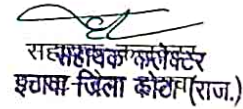 सहायक कलेक्टर
इटावा-जिला कोटा (राज.)